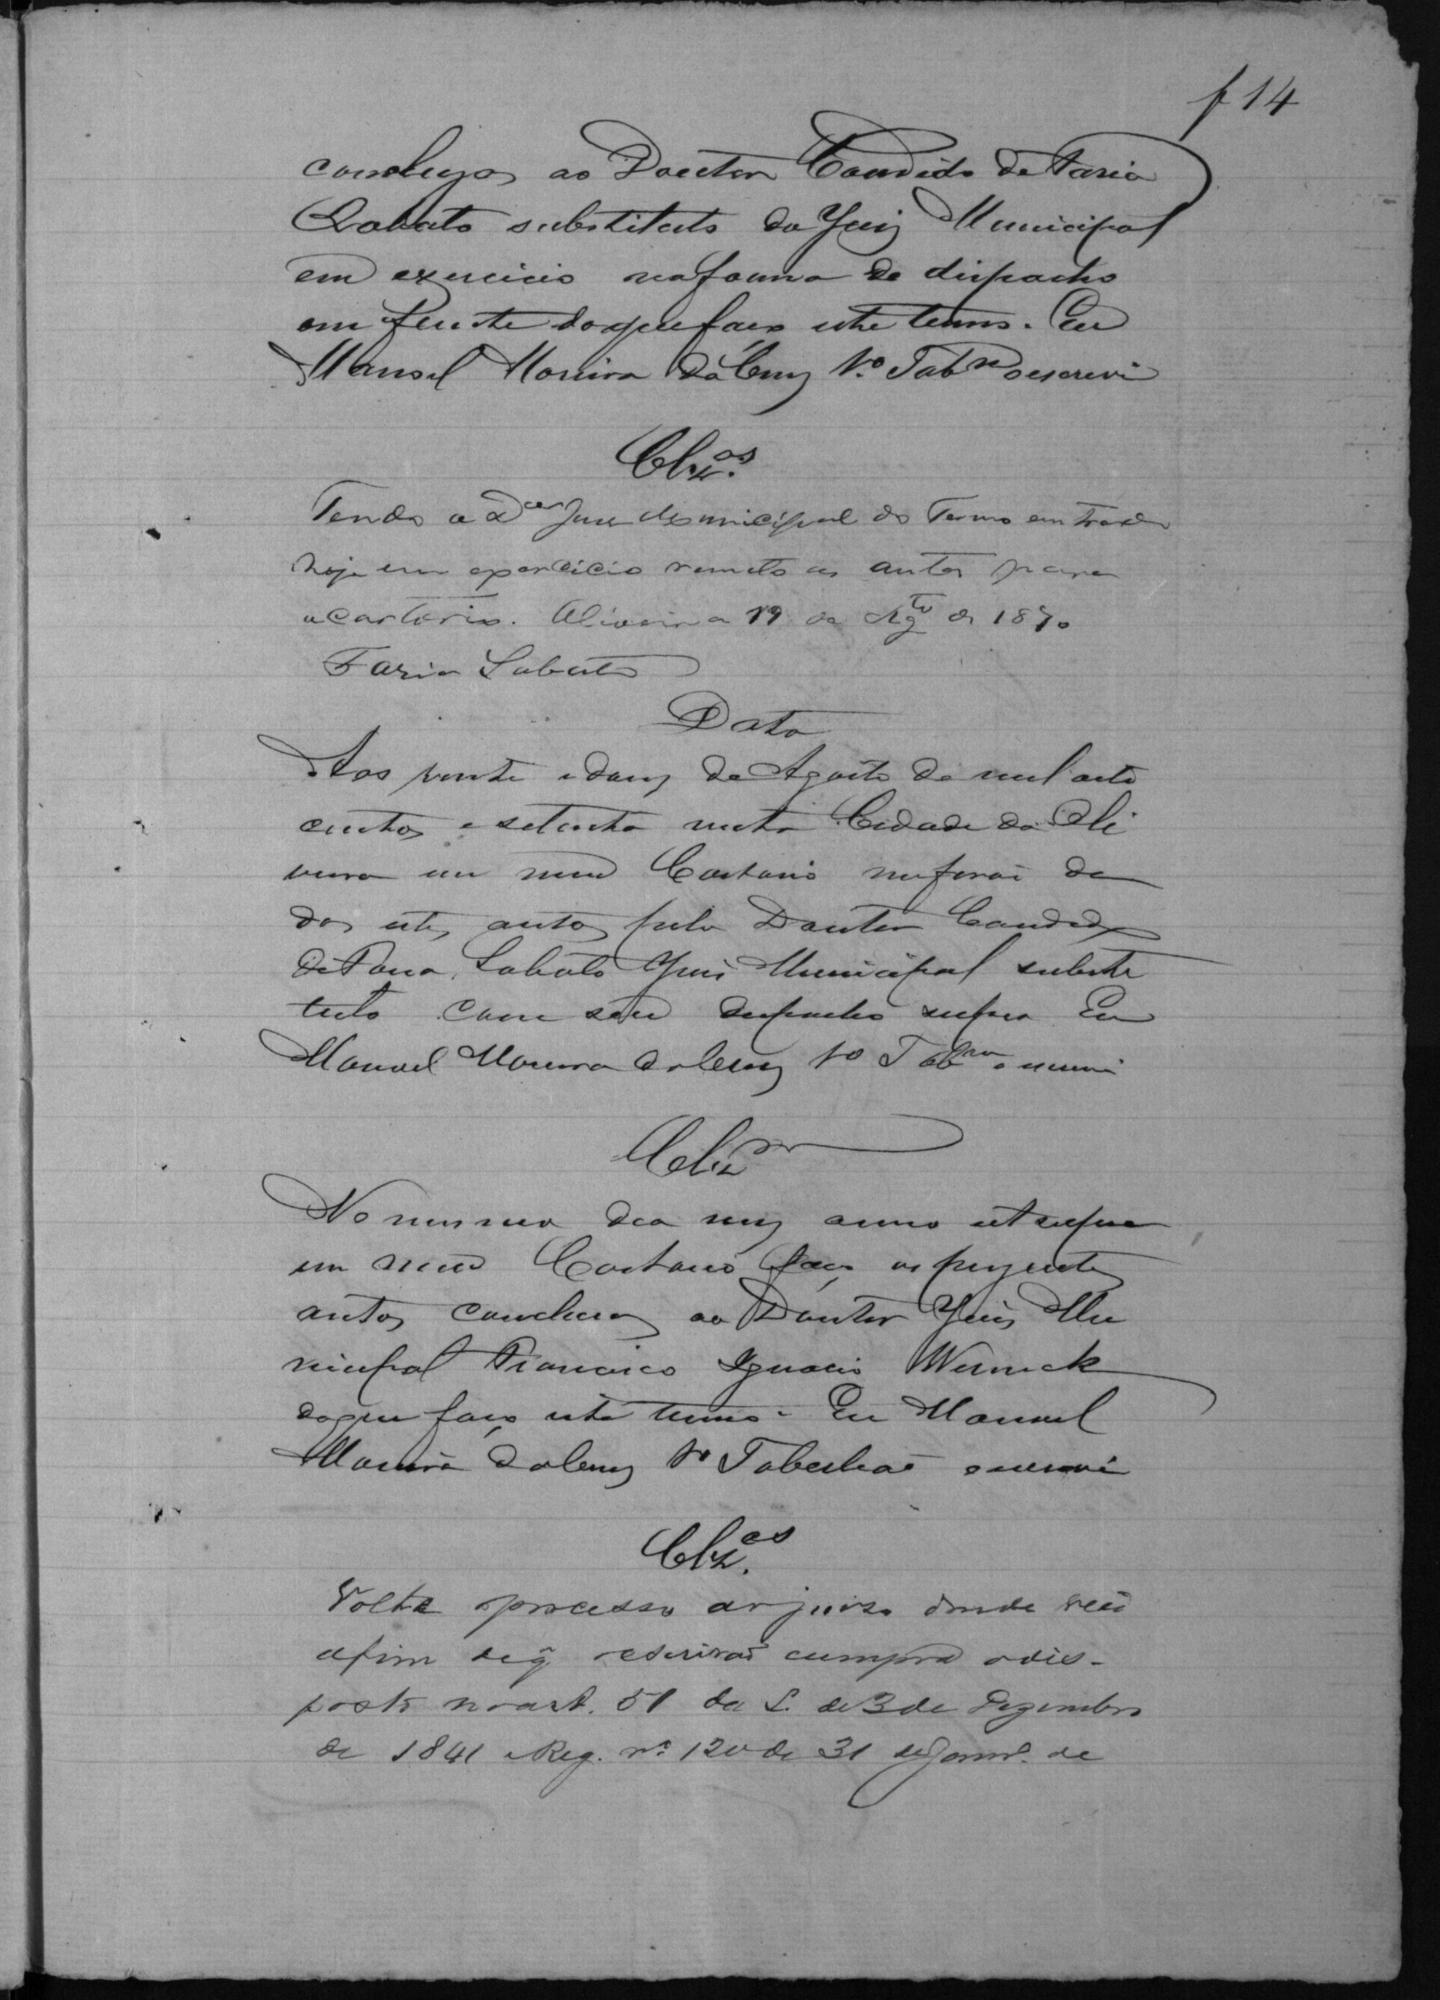 f 14
concluzos ao Doutor Candido de Faria
Lobato substituto do Juiz Municipal
em exercicio na forma do dispacho
em frente do que faço este termo. Eu
Manoel Moreira da Cruz 1º Tabam o escrevi
Clzos.
Tendo o Dor Juiz Municipal do Termo entrado
hoje em exercicio remeto os autos para
o cartorio. Oliveira 19 de Agto de 1870
Faria Lobato
Data
Aos vinte e dous de Agosto de mil oito
centos e setenta nesta Cidade da Oli
veira em meu Cartorio me forão da
dos estes autos pelo Doutor Candido
de Faria Lobato Juiz Municipal substi
tuto com seu dispacho supra Eu
Manoel Moreira da Cruz 1º Tabam o escrevi
Clz
No mesmo dia mez anno ut supra
em meu Cartorio faço os prezentes
autos concluzos ao Doutor Juiz Mu
nicipal Francisco Ignacio Werneck
do que faço este termo. Eu Manoel
Moreira da Cruz 1º Tabelião o escrevi
Clzos.
Volte o processo ao juizo donde veio
afim de q̃ o escrivão cumpra o dis-
posto no art. 51 da L. de 3 de Dezembro
de 1841 e Reg. nº 120 de 31 de Janrº. de